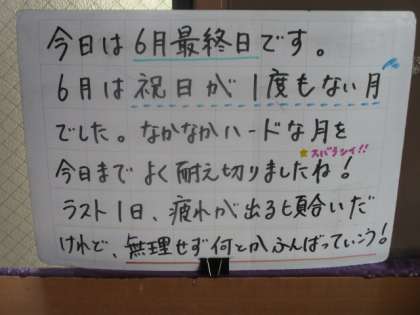 今日は6月最終日です。
6月は祝日が1度もない月
でした。なかなかハードな月を
★スバラシイ!!
今日までよく耐え切りましたね!
ラスト1日、疲れが出る頃合いだ
けれど、無理せず何とかふんばっていこう!